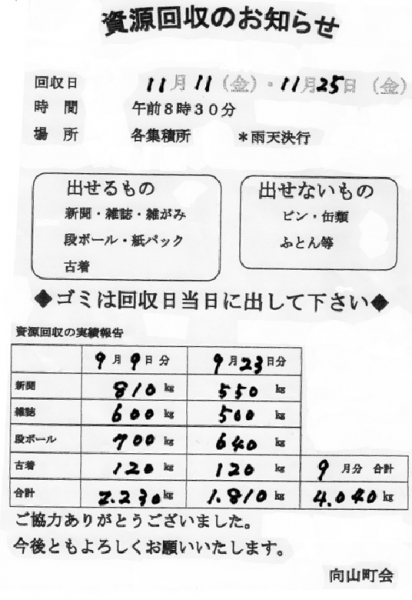 資源回収のお知らせ
回収日 11月11(金)・11月25日(金)
時 間 午前8時30分
場 所 各集積所 *雨天決行
出せるもの
新聞・雑誌・雑がみ
段ボール・紙パック
古着
出せないもの
ビン・缶類
ふとん等
◆ゴミは回収日当日に出して下さい◆
資源回収の実績報告
9月9日分 9月23日分
新聞 810kg 550kg
雑誌 600kg 500kg
段ボール 700kg 640kg
古着 120kg 120kg 9月分 合計
合計 2.230kg 1.810kg 4.040kg
ご協力ありがとうございました。
今後ともよろしくお願いいたします。
向山町会